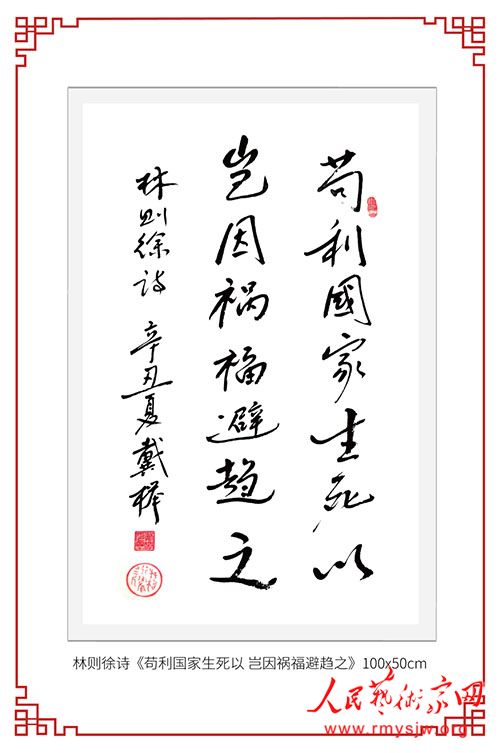 苟利國家生死以
岂因祸福避趋之
林则徐诗 辛丑夏戴榉
林则徐诗《苟利国家生死以 岂因祸福避趋之》100x50cm
人民艺術家网
www.rmysjw.org